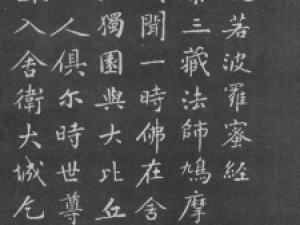 若波羅蜜經
三藏法師鳩摩
聞一時佛在舍
獨園與大比丘
人俱尔時世尊
入舍衛大城乞